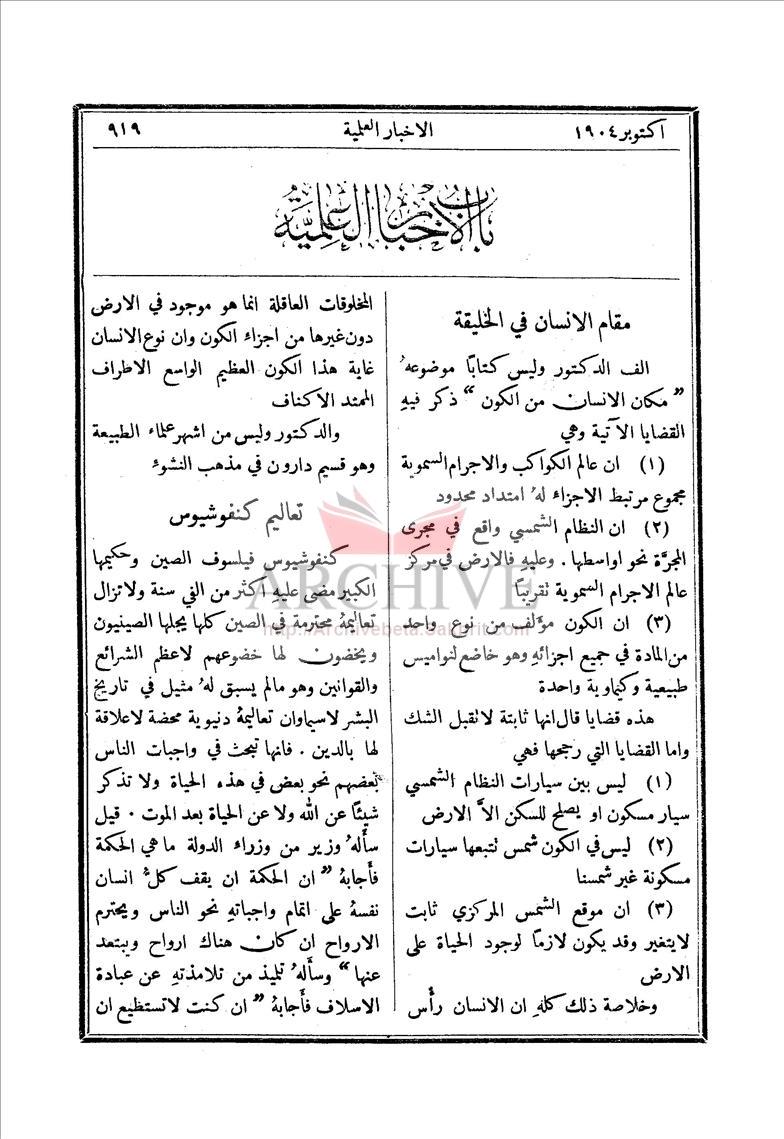 اكتوبر ١٩٠٤
الاخبار العلمية
٩١٩
باب الاخبار العلمية
مقام الانسان في الخليقة
الف الدكتور وليس كتابًا موضوعهُ
” مكان الانسان من الكون “ ذكر فيهِ
القضايا الآتية وهي
(١) ان عالم الكواكب والاجرام السموية
مجموع مرتبط الاجزاء لهُ امتداد محدود
(٢) ان النظام الشمسي واقع في مجرى
المجرَّة نحو اواسطها . وعليهِ فالارض في مركز
عالم الاجرام السموية نقريبًا
(٣) ان الكون مؤلف من نوع واحد
من المادة في جميع اجزائهِ وهو خاضع لنواميس
طبيعية وكيماوية واحدة
هذه قضايا قال انها ثابتة لا نقبل الشك
واما القضايا التي رجحها فهي
(١) ليس بين سيارات النظام الشمسي
سيار مسكون او يصلح للسكن الاَّ الارض
(٢) ليس في الكون شمس نتبعها سيارات
مسكونة غير شمسنا
(٣) ان موقع الشمس المركزي ثابت
لا يتغير وقد يكون لازمًا لوجود الحياة على
الارض
وخلاصة ذلك كلهِ ان الانسان رأْس
المخلوقات العاقلة انما هو موجود في الارض
دون غيرها من اجزاء الكون وان نوع الانسان
غاية هذا الكون العظيم الواسع الاطراف
الممتد الاكناف
والدكتور وليس من اشهر علماء الطبيعة
وهو قسيم دارون في مذهب النشوء
تعاليم كنفوشيوس
كنفوشيوس فيلسوف الصين وحكيمها
الكبير مضى عليهِ اكثر من الفي سنة ولا تزال
تعاليمهُ محترمة في الصين كلها يجلها الصينيون
ويخضون لها خضوعهم لاعظم الشرائع
والقوانين وهو مالم يسبق لهُ مثيل في تاريخ
البشر لاسيما وان تعاليمهُ دنيوية محضة لا علاقة
لها بالدين . فانها تبحث في واجبات الناس
بعضهم نحو بعض في هذه الحياة ولا تذكر
شيئًا عن الله ولا عن الحياة بعد الموت . قيل
سأَلهُ وزير من وزراء الدولة ما هي الحكمة
فأَجابهُ ” ان الحكمة ان يقف كلُّ انسان
نفسهُ على اتمام واجباتهِ نحو الناس ويحترم
الارواح ان كان هناك ارواح ويبتعد
عنها “ وسأَلهُ تليذ من تلامذتهِ عن عبادة
الاسلاف فأَجابهُ ” ان كنت لا تستطيع ان
ARCHIVE
http://Archivebeta.Sakhrit.com